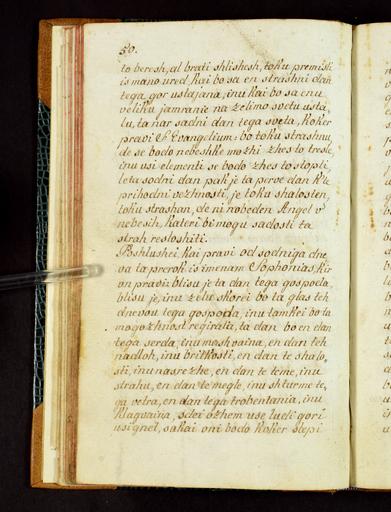 50.
to beresh, al brati shlishesh, toku premisli
is mano ured, kai bo sa en strashni dan
tega gor ustajana, inu kai bo sa enu
veliku jamranie na zelimo svetu usta,
lu, ta nar sadni dan tega sveta, Koker
pravi S. Evangelium: bo toku strashnu,
de se bodo nebeshke mozhi zhes to tresle,
inu usi elementi se bodo zhes to stopili,
leta sodni dan pak je ta prve dan k'te
prihodni vezhnosti, je toku shalosten,
toku strashan, de ni nobeden Angel v'
nebesih, kateri bi mogu sadosti ta
strah resloshiti.
Poshlushei, kai pravi od sodniga dne,
va ta prerok is imenam Sophonias, kir
on pravi: blisu je ta dan tega gospoda,
blisu je, inu zelu skorei bo ta glas teh
dnevou tega gospoda, inu tamkei bo ta
mogozhnost regirala, ta dan bo en dan
tega serda, inu moshvaina, en dan teh
nadloh, inu britkosti, en dan te shalo,
sti, inu nasrezhe, en dan te teme, inu
strahu, en dan te megle, inu shturme te,
ga vetra, en dan tega trobentania, inu
klaguaina, sdei ozhem use ludi gori
usignet, sakai oni bodo koker slepi